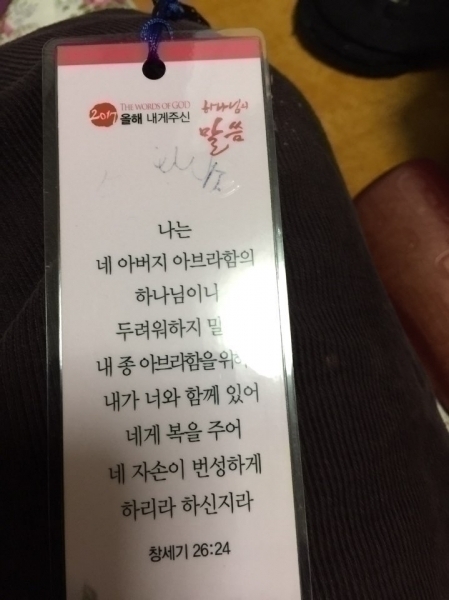 2017 THE WORDS OF GOD
올해 내게주신
하나님의
말씀
나는
네 아버지 아브라함의
하나님이니
두려워하지 말
내 종 아브라함을 위하
내가 너와 함께 있어
네게 복을 주어
네 자손이 번성하게
하리라 하신지라
창세기 26:24